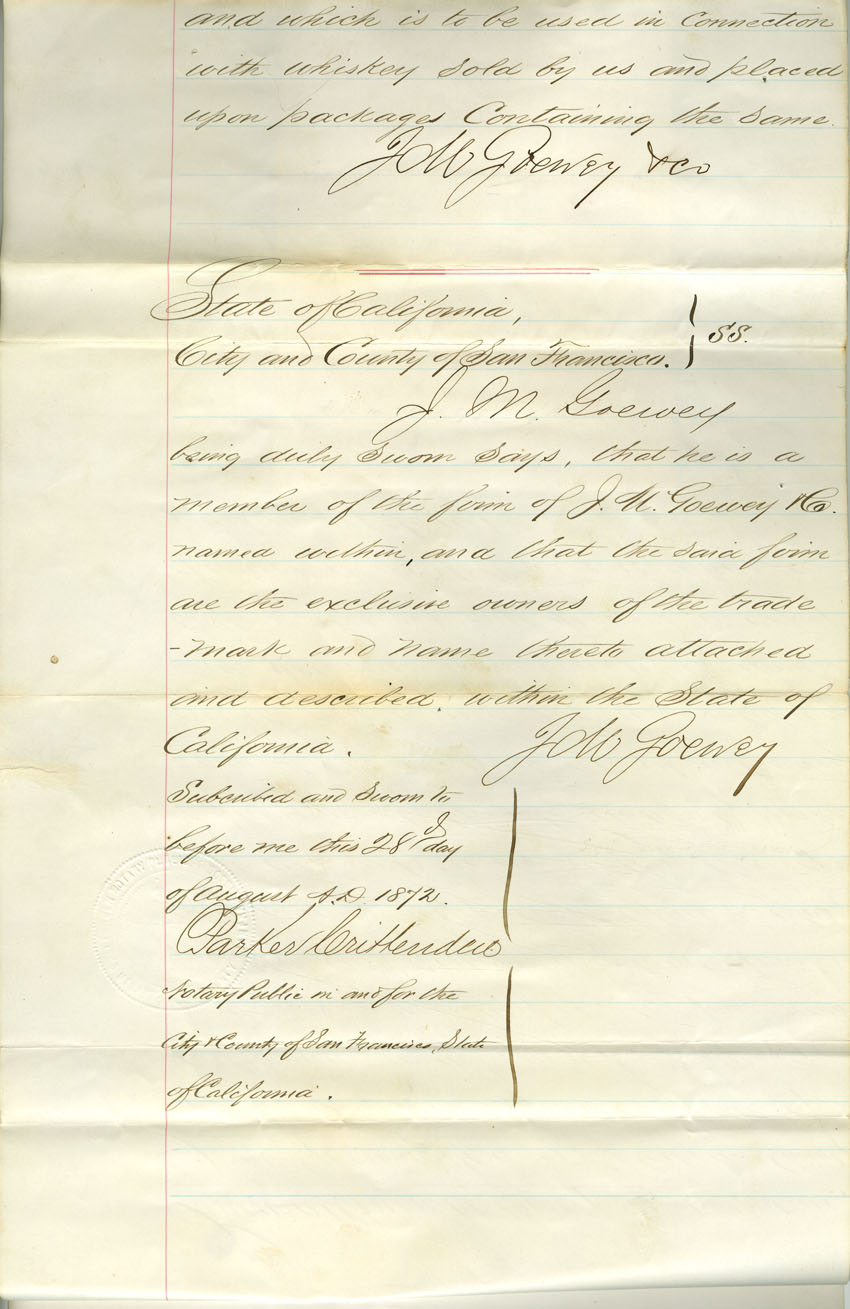 and which is to be used in Connection
with whiskey sold by us and placed
upon packages Containing the same.
J M Goewey & Co
State of California,
City and County of San Francisco. } SS.
J. M. Goewey
being duly sworn says, that he is a
member of the firm of J. M. Goewey & Co.
named within, and that the said firm
are the exclusive owners of the trade
-mark and name thereto attached
and described, within the State of
California.
J M Goewey
Subcribed and sworn to
before me this 28th day
of August A.D. 1872.
Parker Crittenden
Notary Public in and for the
City & County of San Francisco, State
of California.